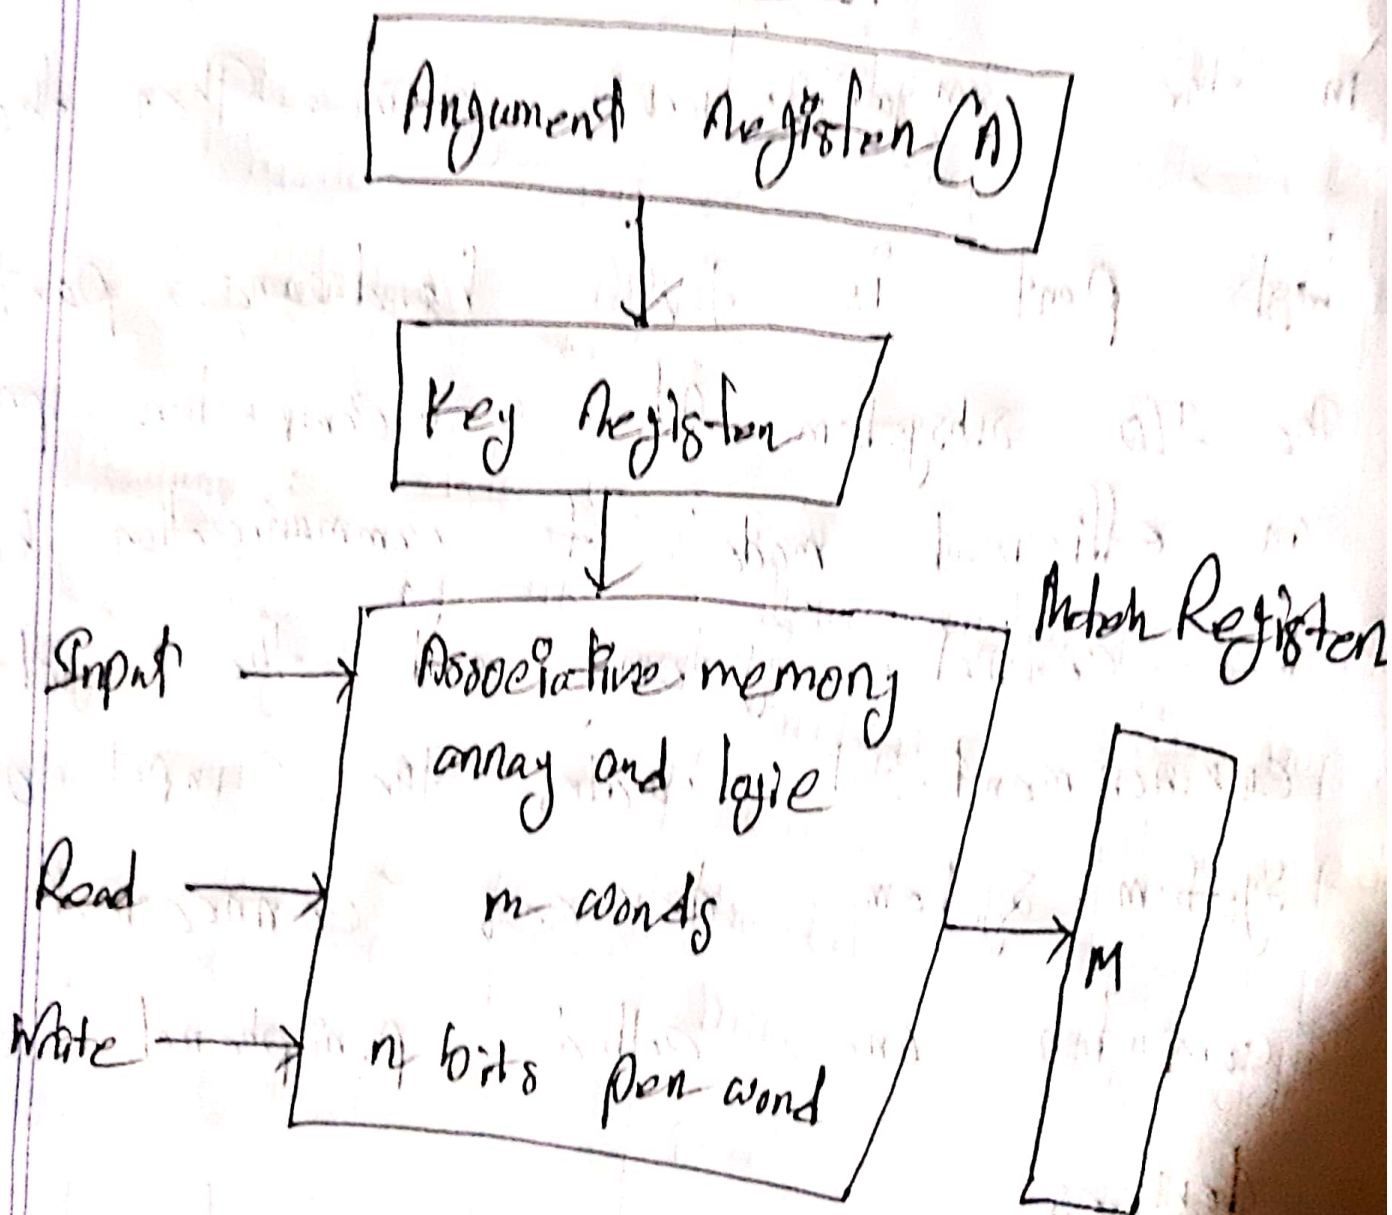 Argument Register (A)
Key Register
Match Register
Input
Associative memory
array and logic
Read
m words
M
Write
n bits per word